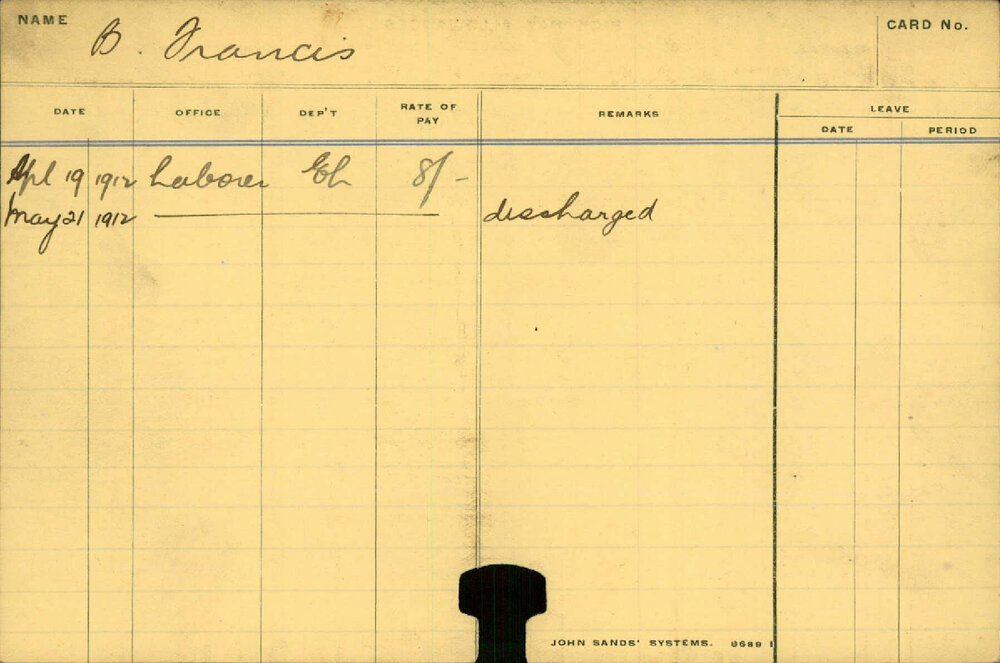 NAME B. Francis CARD No.
DATE OFFICE DEP'T RATE OF PAY REMARKS LEAVE
DATE PERIOD
Apl 19 1912 Laborer 8/-
May 21 1912 discharged
JOHN SANDS' SYSTEMS. 6689